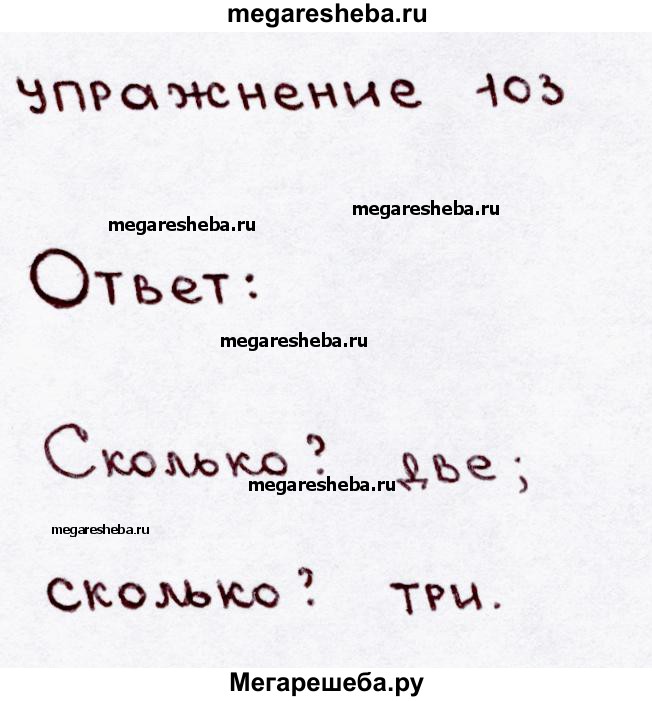 megaresheba.ru
упражнение 103
megaresheba.ru
megaresheba.ru
Ответ:
megaresheba.ru
Сколько? две;
megaresheba.ru
megaresheba.ru
сколько? три.
Мегарешеба.ру